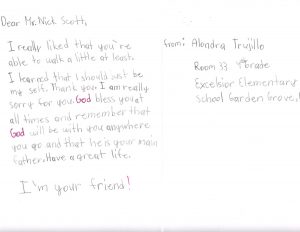 Dear Mr. Nick Scott,
I really liked that you're
able to walk a little at least.
I learned that I should just be
my self. Thank you. I am really
sorry for you. God bless you at
all times and remember that
God will be with you anywhere
you go and that he is your main
father. Have a great life.
I'm your friend!
from: Alondra Trujillo
Room 33 4th Grade
Excelsior Elementary
school Garden Grove,